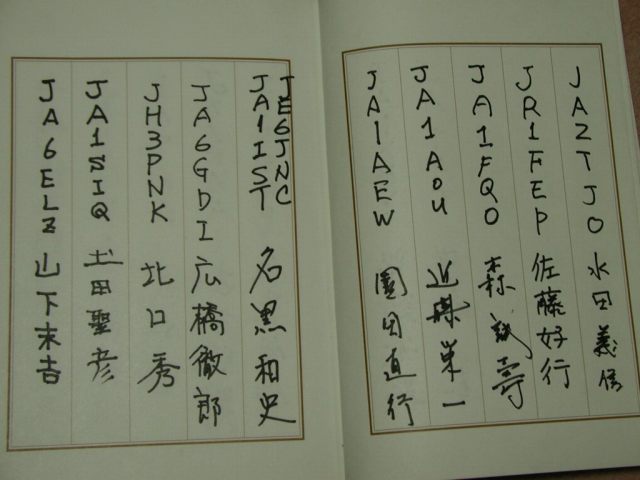 JA2TJO 水田義
JR1FEP 佐藤好行
JA1FQO 森
JA1AOU
JA1AEW 園田直行
JE6JNC
JA1IST 名黒和史
JA6GDI 広橋徹郎
JH3PNK 北口秀
JA1SIQ 土田聖彦
JA6ELZ 山下末吉